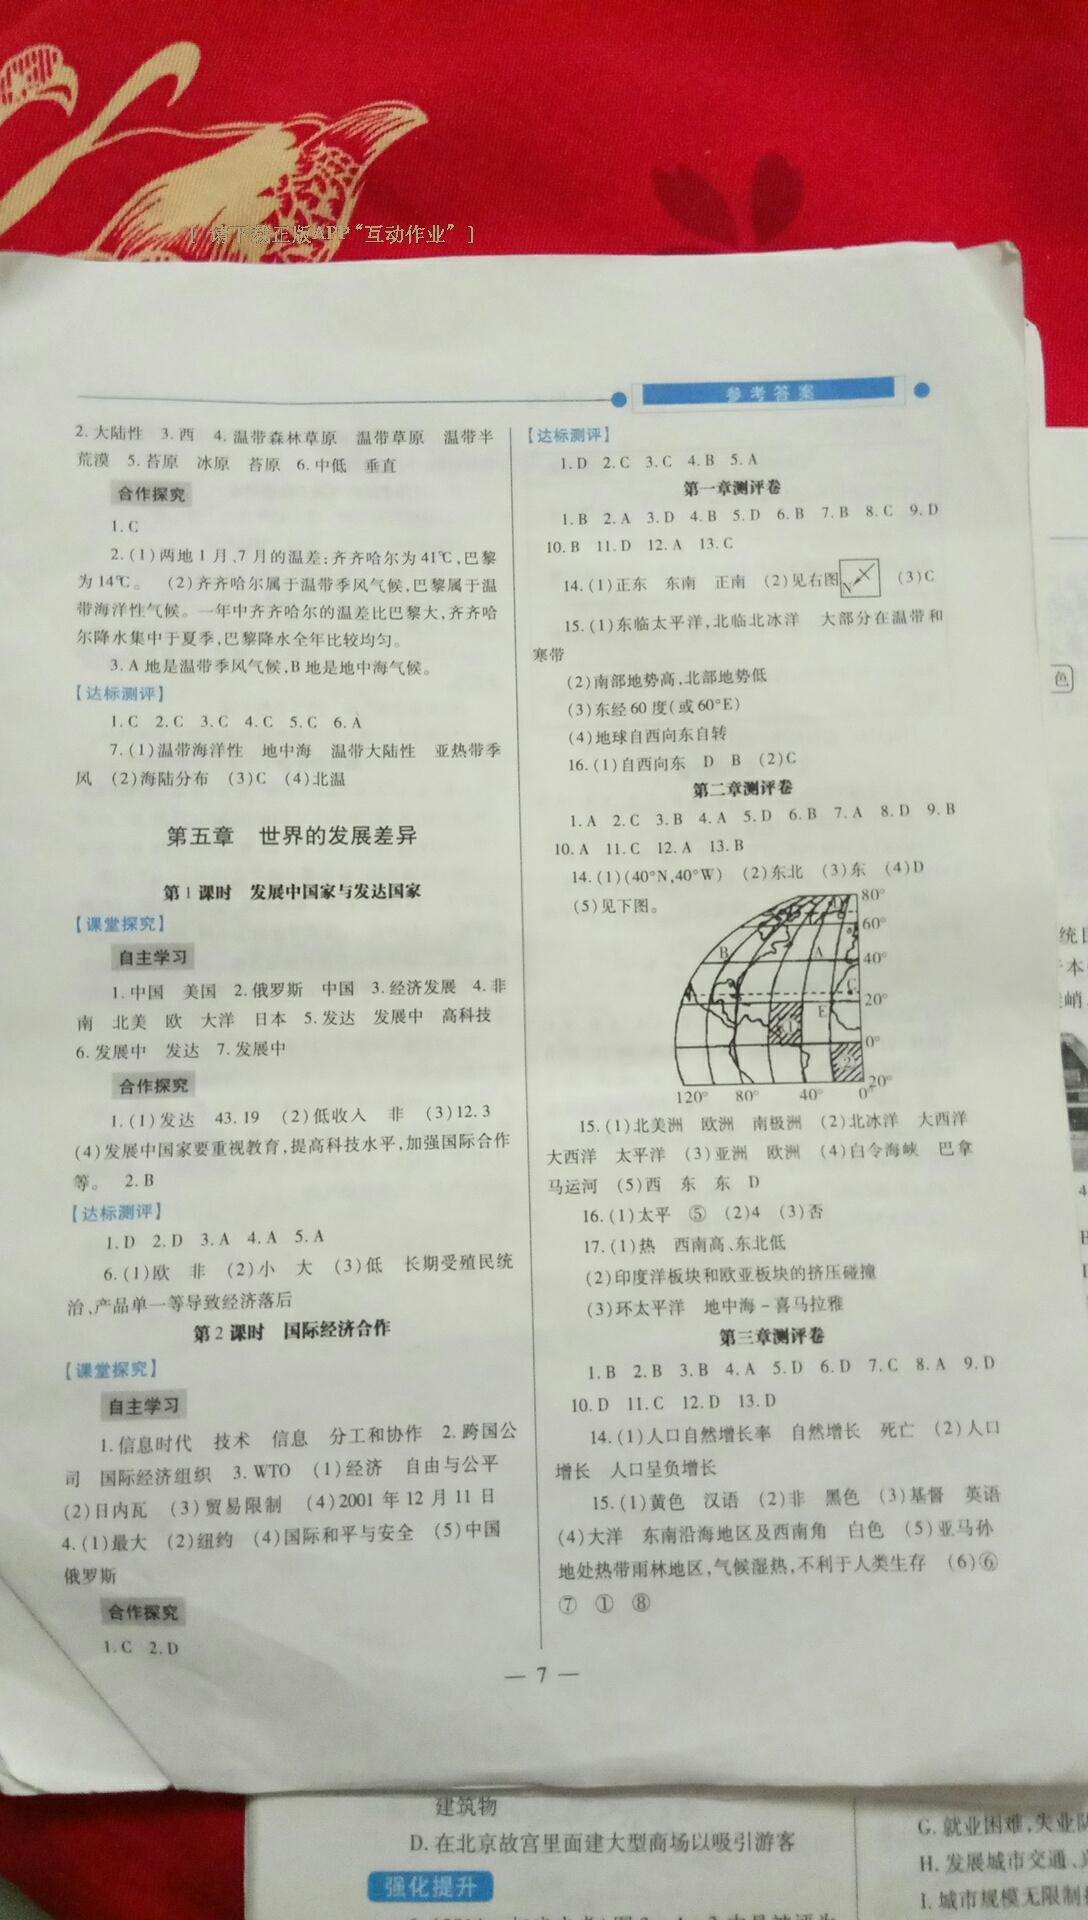 [ 请下载正版APP“互动作业” ]
参考答案
2.大陆性 3.西 4.温带森林草原 温带草原 温带半
荒漠 5.苔原 冰原 苔原 6.中低 垂直
合作探究
1.C
2.(1)两地1月、7月的温差:齐齐哈尔为41℃,巴黎
为14℃。 (2)齐齐哈尔属于温带季风气候,巴黎属于温
带海洋性气候。一年中齐齐哈尔的温差比巴黎大,齐齐哈
尔降水集中于夏季,巴黎降水全年比较均匀。
3.A地是温带季风气候,B地是地中海气候。
【达标测评】
1.C 2.C 3.C 4.C 5.C 6.A
7.(1)温带海洋性 地中海 温带大陆性 亚热带季
风 (2)海陆分布 (3)C (4)北温
第五章 世界的发展差异
第1课时 发展中国家与发达国家
【课堂探究】
自主学习
1.中国 美国 2.俄罗斯 中国 3.经济发展 4.非
南 北美 欧 大洋 日本 5.发达 发展中 高科技
6.发展中 发达 7.发展中
合作探究
1.(1)发达 43.19 (2)低收入 非 (3)12.3
(4)发展中国家要重视教育,提高科技水平,加强国际合作
等。 2.B
【达标测评】
1.D 2.D 3.A 4.A 5.A
6.(1)欧 非 (2)小 大 (3)低 长期受殖民统
治、产品单一等导致经济落后
第2课时 国际经济合作
【课堂探究】
自主学习
1.信息时代 技术 信息 分工和协作 2.跨国公
司 国际经济组织 3.WTO (1)经济 自由与公平
(2)日内瓦 (3)贸易限制 (4)2001年12月11日
4.(1)最大 (2)纽约 (4)国际和平与安全 (5)中国
俄罗斯
合作探究
1.C 2.D
【达标测评】
1.D 2.C 3.C 4.B 5.A
第一章测评卷
1.B 2.A 3.D 4.B 5.D 6.B 7.B 8.C 9.D
10.B 11.D 12.A 13.C
14.(1)正东 东南 正南 (2)见右图 (3)C
15.(1)东临太平洋,北临北冰洋 大部分在温带和
寒带
(2)南部地势高,北部地势低
(3)东经60度(或60°E)
(4)地球自西向东自转
16.(1)自西向东 D B (2)C
第二章测评卷
1.A 2.C 3.B 4.A 5.D 6.B 7.A 8.D 9.B
10.A 11.C 12.A 13.B
14.(1)(40°N,40°W) (2)东北 (3)东 (4)D
(5)见下图。
80°
60°
B A 40°
C 20°
1 E
0°
2
20°
120° 80° 40° 0°
15.(1)北美洲 欧洲 南极洲 (2)北冰洋 大西洋
大西洋 太平洋 (3)亚洲 欧洲 (4)白令海峡 巴拿
马运河 (5)西 东 东 D
16.(1)太平 ⑤ (2)4 (3)否
17.(1)热 西南高、东北低
(2)印度洋板块和欧亚板块的挤压碰撞
(3)环太平洋 地中海－喜马拉雅
第三章测评卷
1.B 2.B 3.B 4.A 5.D 6.D 7.C 8.A 9.D
10.D 11.C 12.D 13.D
14.(1)人口自然增长率 自然增长 死亡 (2)人口
增长 人口呈负增长
15.(1)黄色 汉语 (2)非 黑色 (3)基督 英语
(4)大洋 东南沿海地区及西南角 白色 (5)亚马孙
地处热带雨林地区,气候湿热,不利于人类生存 (6)⑥
⑦ ① ⑧
— 7 —
色
建筑物
D.在北京故宫里面建大型商场以吸引游客
强化提升
G.就业困难,失业
H.发展城市交通、
I.城市规模无限制